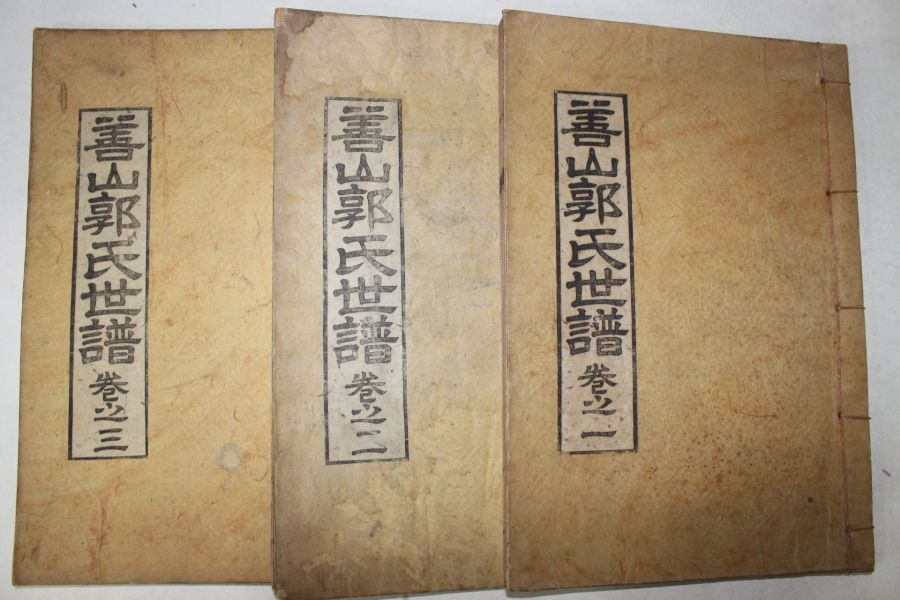 善山郭氏世譜 卷之一
善山郭氏世譜 卷之二
善山郭氏世譜 卷之三